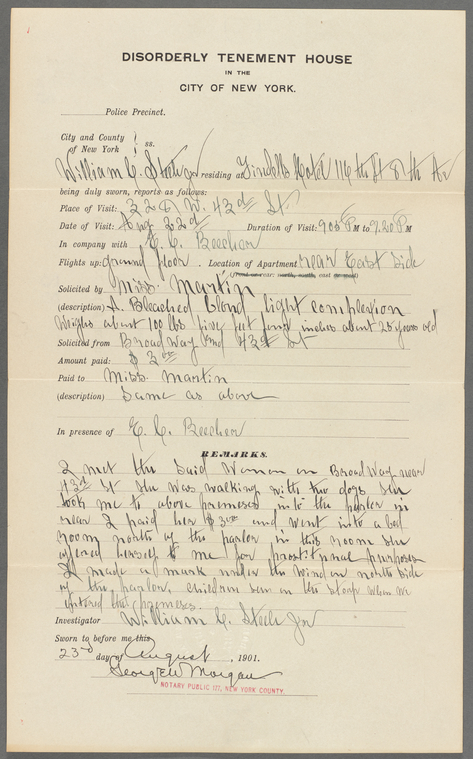 DISORDERLY TENEMENT HOUSE
IN THE
CITY OF NEW YORK.
Police Precinct.
City and County
of New York ss.
William C. residing at Hotel 116th St 8th Av
being duly sworn, reports as follows:
Place of Visit: 228 W. 43d St
Date of Visit: Aug 22d Duration of Visit: 905 PM to 9.20 PM
In company with E. C. Beecher
Flights up: ground floor. Location of Apartment rear East Side
(front or rear; north, south, east or west)
Solicited by Miss Martin
(description) A Bleached blond light complexion
Weighs about 100 lbs five feet inches about 25 years old
Solicited from Broadway and 43d St
Amount paid: $ 3 00
Paid to Miss Martin
(description) Same as above
In presence of E. C. Beecher
REMARKS.
I met the said Woman on Broadway near
43d St she was walking with two dogs she
took me to above premeses into the parlor in
rear I paid her $3 00 and went into a bed
room north of the parlor in this room she
offered herself to me for prostitional purposes
I made a mark under the window north side
of the parlor, children sun on the stoop when we
entered the premeses.
Investigator William C. Steele Jr
Sworn to before me this
23rd day of August, 1901.
George W Morgan
NOTARY PUBLIC 177, NEW YORK COUNTY.